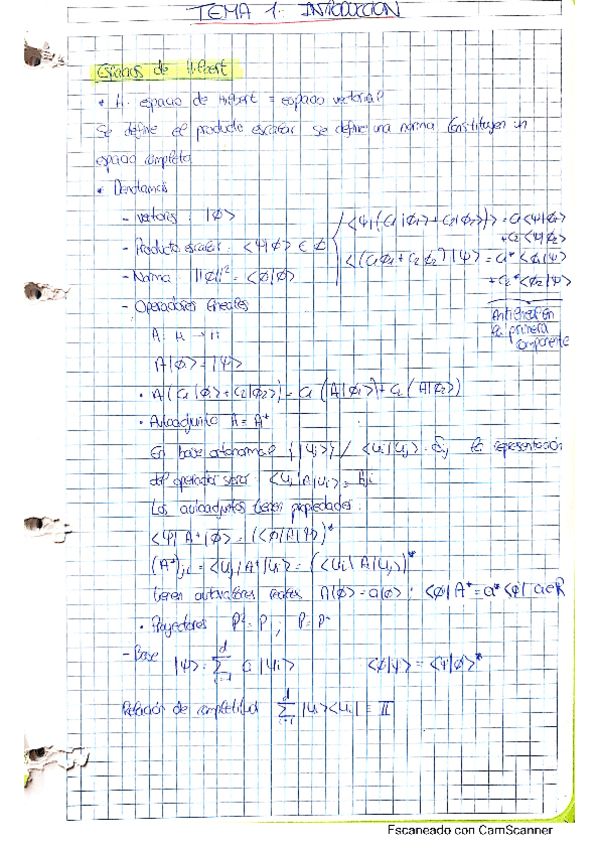 TEMA 1. INTRODUCCION
Espacios de Hilbert
• H. espacio de Hilbert = espacio vectorial
Se define el producto escalar se define una norma Constituyen un
espacio completo
• Denotamos
- vectores: |ϕ>
- Producto escalar: <ψ|ϕ> ∈ ₵ { <ψ|(C₁|ϕ₁>+C₂|ϕ₂>)> = C₁<ψ|ϕ₁>
+C₂<ψ|ϕ₂>
<(C₁ϕ₁+C₂ϕ₂)|ψ> = C₁*<ϕ₁|ψ>
+C₂*<ϕ₂|ψ>
- Norma: ||ϕ||² = <ϕ|ϕ>
Antilineal en
la primera
componente
- Operadores lineales
A: H → H
A|ϕ> = |ψ>
• A(C₁|ϕ₁>+C₂|ϕ₂>) = C₁(A|ϕ₁>)+C₂(A|ϕ₂>)
• Autoadjunto A = A⁺
En base ortonormal {|Ui>} / <Ui|Uj> = δij la representación
del operador será: <Uj|A|Ui> = Aji
Los autoadjuntos tienen propiedades:
<ψ|A⁺|ϕ> = (<ϕ|A|ψ>)*
(A⁺)ji = <Uj|A⁺|Ui> = (<Ui|A|Uj>)*
tienen autovalores reales A|ϕ> = a|ϕ>; <ϕ|A⁺ = a*<ϕ| a∈R
• Proyectores P² = P; P = P⁺
- Base |ψ> = Σ_{i=1}^{d} Ci|Ui> <ϕ|ψ> = <ψ|ϕ>*
Relación de completitud Σ_{i=1}^{d} |Ui><Ui| = II
Escaneado con CamScanner